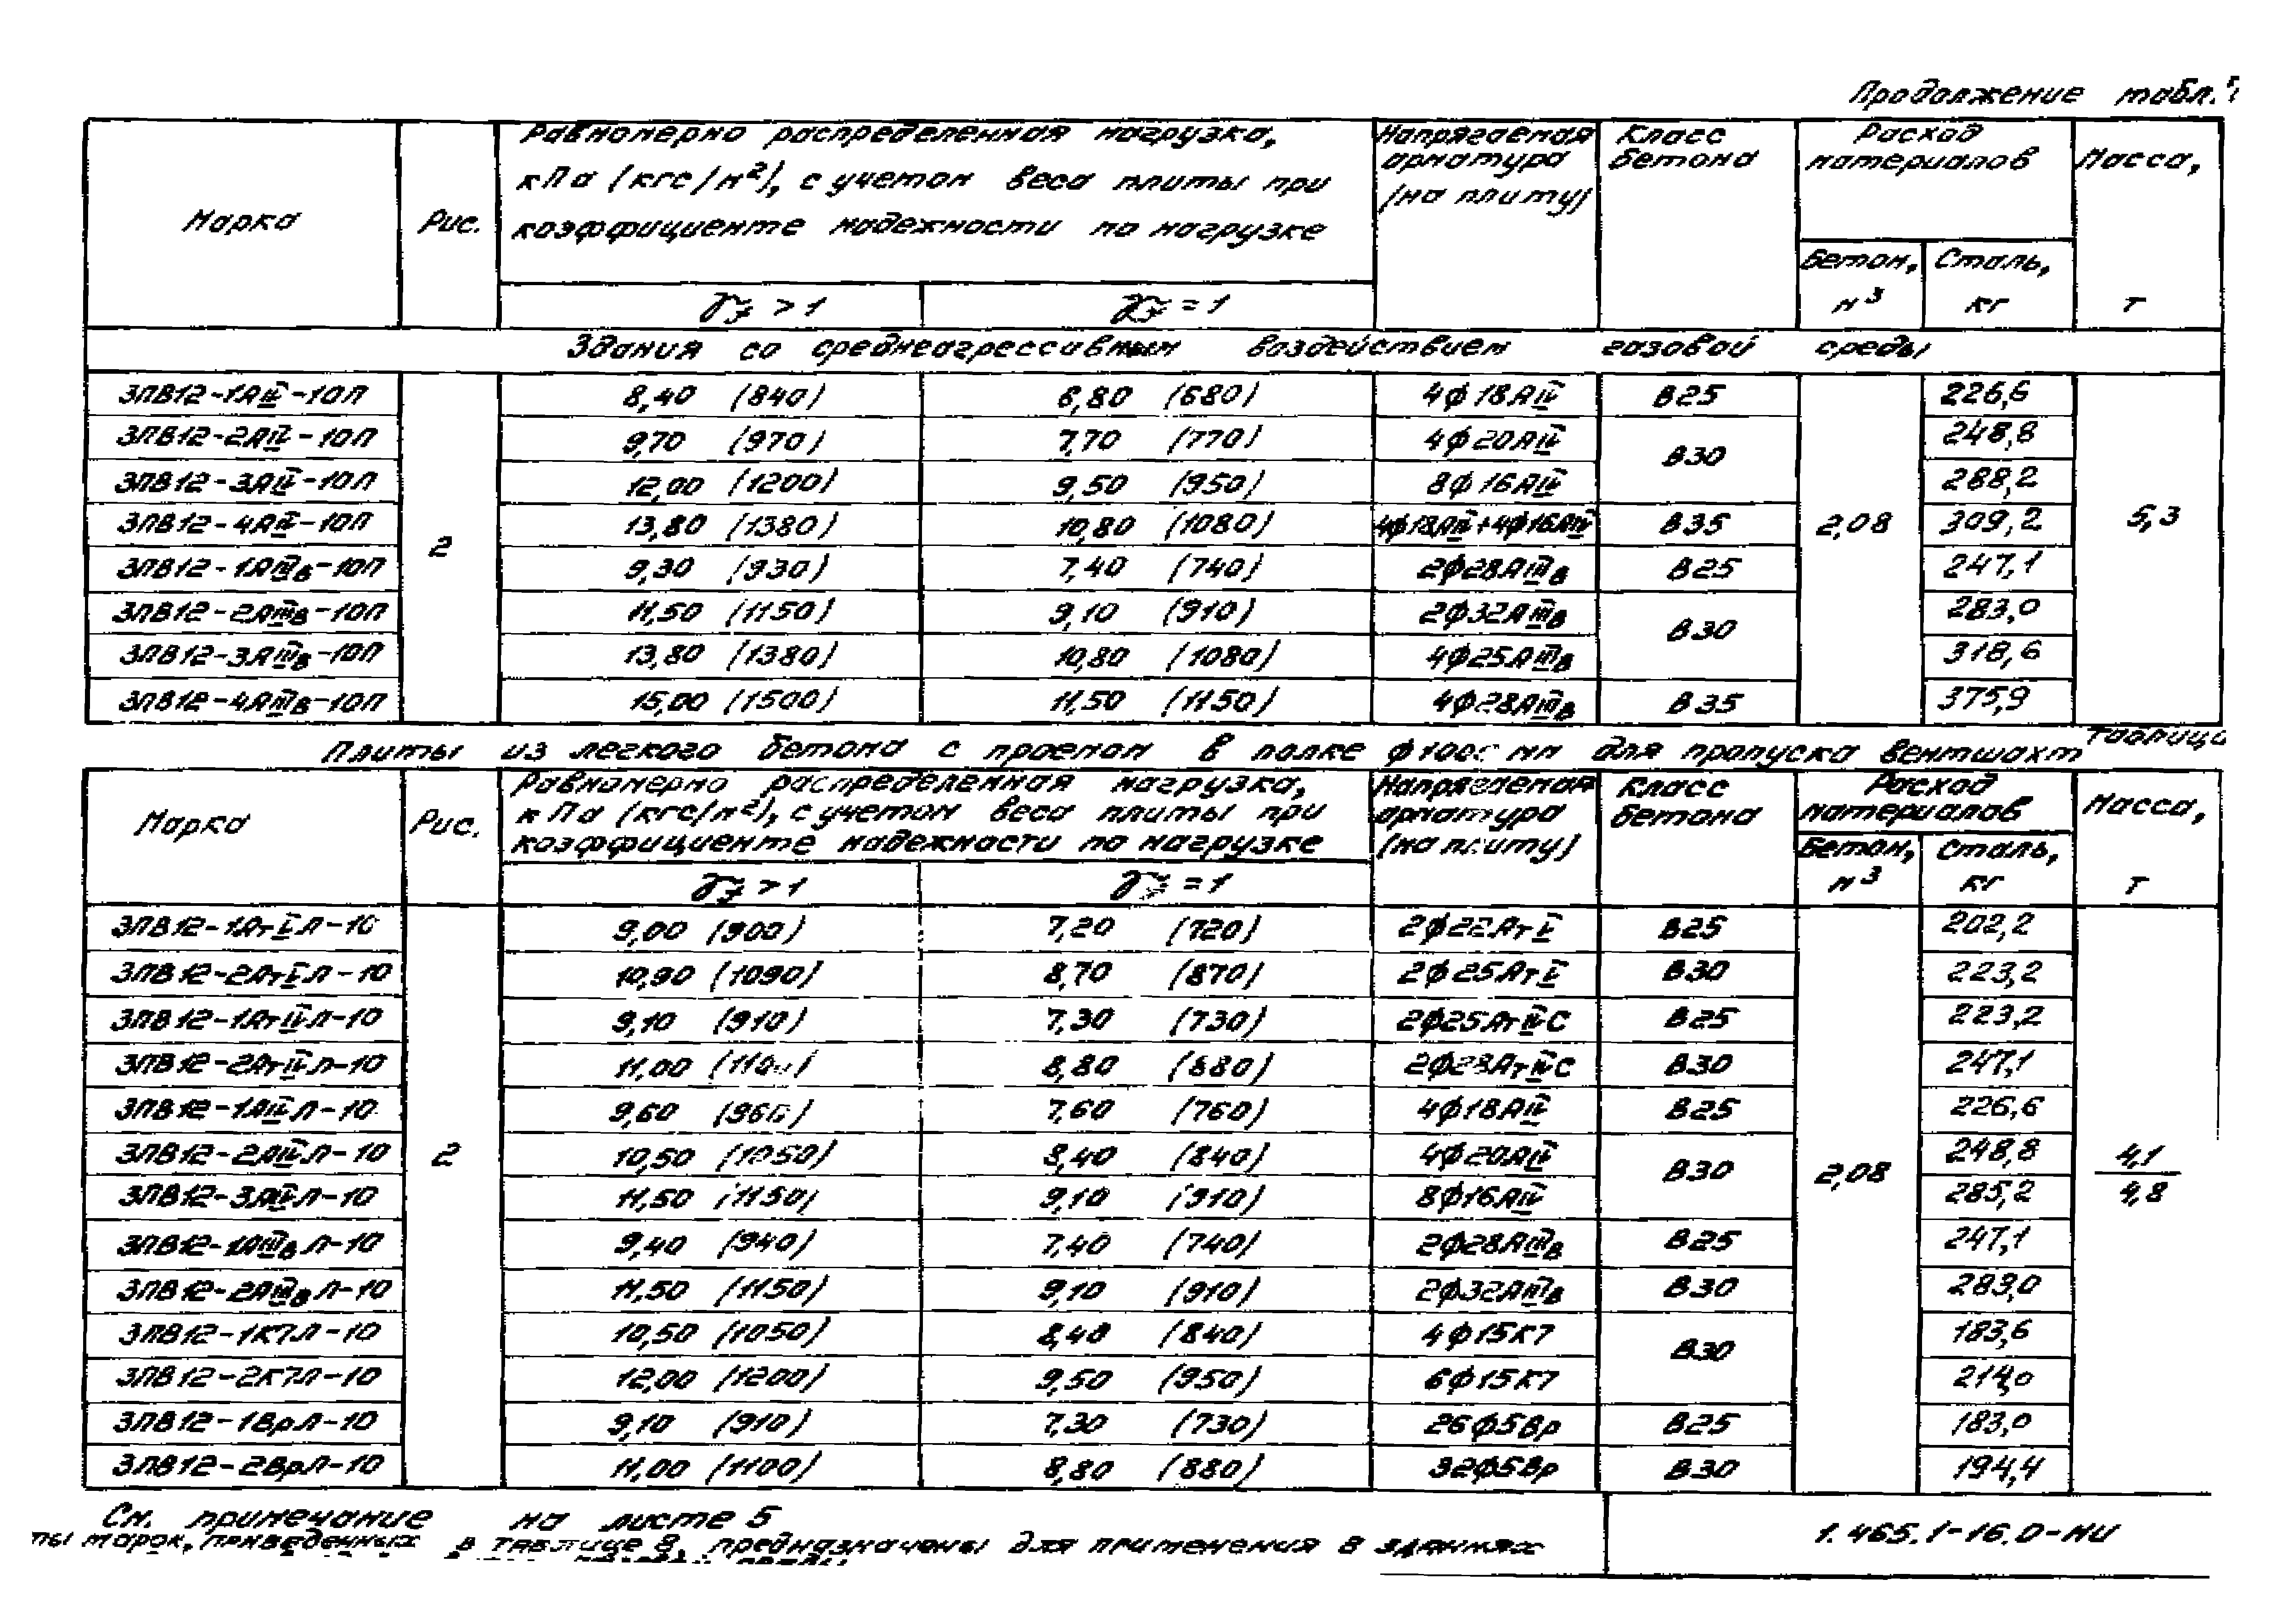 Продолжение табл.
Марка Рис. Равномерно распределенная нагрузка, кПа (кгс/м²), с учетом веса плиты при коэффициенте надежности по нагрузке Напрягаемая арматура (на плиту) Класс бетона Расход материалов Масса, т
γf > 1 γf = 1 Бетон, м³ Сталь, кг
Здания со среднеагрессивным воздействием газовой среды
3ПВ12-1АIV-10П 2 8,40 (840) 6,80 (680) 4ф18АIV В25 2,08 226,6 5,3
3ПВ12-2АIV-10П 9,70 (970) 7,70 (770) 4ф20АIV В30 248,8
3ПВ12-3АIV-10П 12,00 (1200) 9,50 (950) 8ф16АIV 288,2
3ПВ12-4АIV-10П 13,80 (1380) 10,80 (1080) 4ф18АIV+4ф16АIV В35 309,2
3ПВ12-1АIIIв-10П 9,30 (930) 7,40 (740) 2ф28АIIIв В25 247,1
3ПВ12-2АIIIв-10П 11,50 (1150) 9,10 (910) 2ф32АIIIв В30 283,0
3ПВ12-3АIIIв-10П 13,80 (1380) 10,80 (1080) 4ф25АIIIв 318,6
3ПВ12-4АIIIв-10П 15,00 (1500) 11,50 (1150) 4ф28АIIIв В35 375,9
Плиты из легкого бетона с проемом в полке ф1000 мм для пропуска вентшахт Таблица
Марка Рис. Равномерно распределенная нагрузка, кПа (кгс/м²), с учетом веса плиты при коэффициенте надежности по нагрузке Напрягаемая арматура (на плиту) Класс бетона Расход материалов Масса, т
γf > 1 γf = 1 Бетон, м³ Сталь, кг
3ПВ12-1АтVЛ-10 2 9,00 (900) 7,20 (720) 2ф22АтV В25 2,08 202,2 4,1/4,8
3ПВ12-2АтVЛ-10 10,90 (1090) 8,70 (870) 2ф25АтV В30 223,2
3ПВ12-1АтIVЛ-10 9,10 (910) 7,30 (730) 2ф25АтIVС В25 223,2
3ПВ12-2АтIVЛ-10 11,00 (1100) 8,80 (880) 2ф28АтIVС В30 247,1
3ПВ12-1АIVЛ-10 9,60 (960) 7,60 (760) 4ф18АIV В25 226,6
3ПВ12-2АIVЛ-10 10,50 (1050) 8,40 (840) 4ф20АIV В30 248,8
3ПВ12-3АIVЛ-10 11,50 (1150) 9,10 (910) 8ф16АIV 285,2
3ПВ12-1АIIIвЛ-10 9,40 (940) 7,40 (740) 2ф28АIIIв В25 247,1
3ПВ12-2АIIIвЛ-10 11,50 (1150) 9,10 (910) 2ф32АIIIв В30 283,0
3ПВ12-1К7Л-10 10,50 (1050) 8,40 (840) 4ф15К7 В30 183,6
3ПВ12-2К7Л-10 12,00 (1200) 9,50 (950) 6ф15К7 214,0
3ПВ12-1ВрЛ-10 9,10 (910) 7,30 (730) 26ф5Вр В25 183,0
3ПВ12-2ВрЛ-10 11,00 (1100) 8,80 (880) 32ф5Вр В30 194,4
См. примечание на листе 5
марок, приведенных в таблице 8, предназначены для применения в зданиях
1.465.1-16.0-НИ